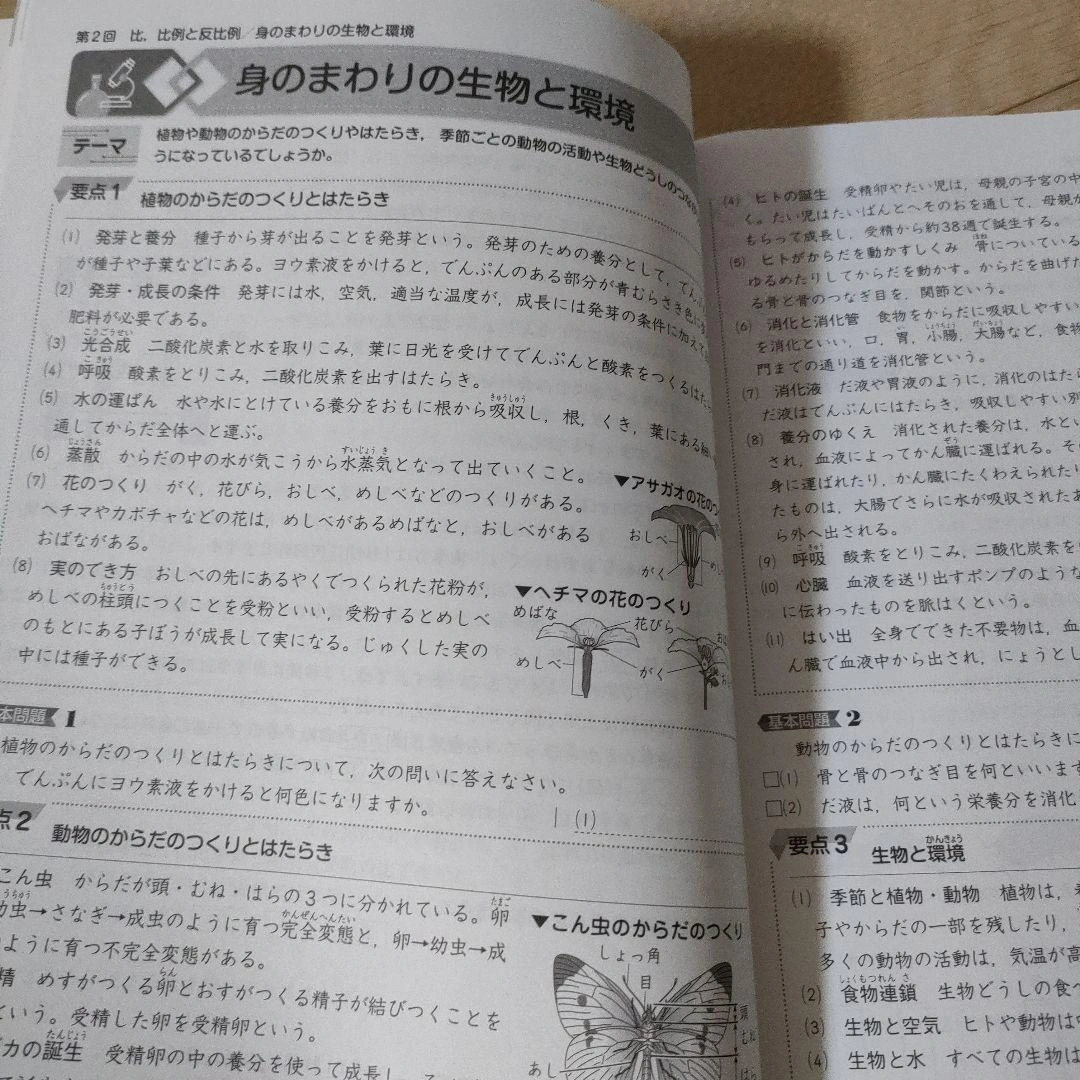 第2回 比，比例と反比例／身のまわりの生物と環境
身のまわりの生物と環境
テーマ
植物や動物のからだのつくりやはたらき，季節ごとの動物の活動や生物どうしのつな
うになっているでしょうか。
要点1 植物のからだのつくりとはたらき
(1) 発芽と養分 種子から芽が出ることを発芽という。発芽のための養分として，でん
が種子や子葉などにある。ヨウ素液をかけると，でんぷんのある部分が青むらさき色に
(2) 発芽・成長の条件 発芽には水，空気，適当な温度が，成長には発芽の条件に加えて
肥料が必要である。
(3) 光合成 二酸化炭素と水を取りこみ，葉に日光を受けてでんぷんと酸素をつくるはた
こうごうせい
(4) 呼吸 酸素をとりこみ，二酸化炭素を出すはたらき。
こきゅう
(5) 水の運ぱん 水や水にとけている養分をおもに根から吸収し，根，くき，葉にある細
きゅうしゅう
通してからだ全体へと運ぶ。
(6) 蒸散 からだの中の水が気こうから水蒸気となって出ていくこと。
じょうさん
すいじょうき
(7) 花のつくり がく，花びら，おしべ，めしべなどのつくりがある。
ヘチマやカボチャなどの花は，めしべがあるめばなと，おしべがある
おばながある。
(8) 実のでき方 おしべの先にあるやくでつくられた花粉が，
めしべの柱頭につくことを受粉といい，受粉するとめしべ
ちゅうとう
のもとにある子ぼうが成長して実になる。じゅくした実の
中には種子ができる。
▼アサガオの花のつ
おしべ
がく
めし
▼ヘチマの花のつくり
めばな
花びら
めしべ
がく
本問題 1
植物のからだのつくりとはたらきについて，次の問いに答えなさい。
でんぷんにヨウ素液をかけると何色になりますか。
(1)
点2 動物のからだのつくりとはたらき
こん虫 からだが頭・むね・はらの3つに分かれている。卵
たまご
幼虫→さなぎ→成虫のように育つ完全変態と，卵→幼虫→成
うちゅう
かんぜんへんたい
のように育つ不完全変態がある。
精 めすがつくる卵とおすがつくる精子が結びつくことを
らん
という。受精した卵を受精卵という。
ダカの誕生 受精卵の中の養分を使って成長し
たんじょう
▼こん虫のからだのつくり
しょっ角
目
頭
むね
はら
あし
(4) ヒトの誕生 受精卵やたい児は，母親の子宮の中
く。たい児はたいばんとへそのおを通して，母親か
もらって成長し，受精から約38週で誕生する。
(5) ヒトがからだを動かすしくみ 骨についている
ほね
ゆるめたりしてからだを動かす。からだを曲げた
る骨と骨のつなぎ目を，関節という。
(6) 消化と消化管 食物をからだに吸収しやすい
を消化といい，口，胃，小腸，大腸など，食物
い
しょうちょう
だいちょう
門までの通り道を消化管という。
(7) 消化液 だ液や胃液のように，消化のはたら
だ液はでんぷんにはたらき，吸収しやすい別
(8) 養分のゆくえ 消化された養分は，水とい
され，血液によってかん臓に運ばれる。そ
ぞう
身に運ばれたり，かん臓にたくわえられたり
たものは，大腸でさらに水が吸収されたあ
ら外へ出される。
(9) 呼吸 酸素をとりこみ，二酸化炭素を
こきゅう
(10) 心臓 血液を送り出すポンプのような
に伝わったものを脈はくという。
(11) はい出 全身でできた不要物は，血
ん臓で血液中から出され，にょうとし
基本問題 2
動物のからだのつくりとはたらきに
□(1) 骨と骨のつなぎ目を何といいます
□(2) だ液は，何という栄養分を消化
要点3 生物と環境
かんきょう
(1) 季節と植物・動物 植物は，
子やからだの一部を残したり，
多くの動物の活動は，気温が高
(2) 食物連鎖 生物どうしの食べ
しょくもつれんさ
(3) 生物と空気 ヒトや動物は
(4) 生物と水 すべての生物は